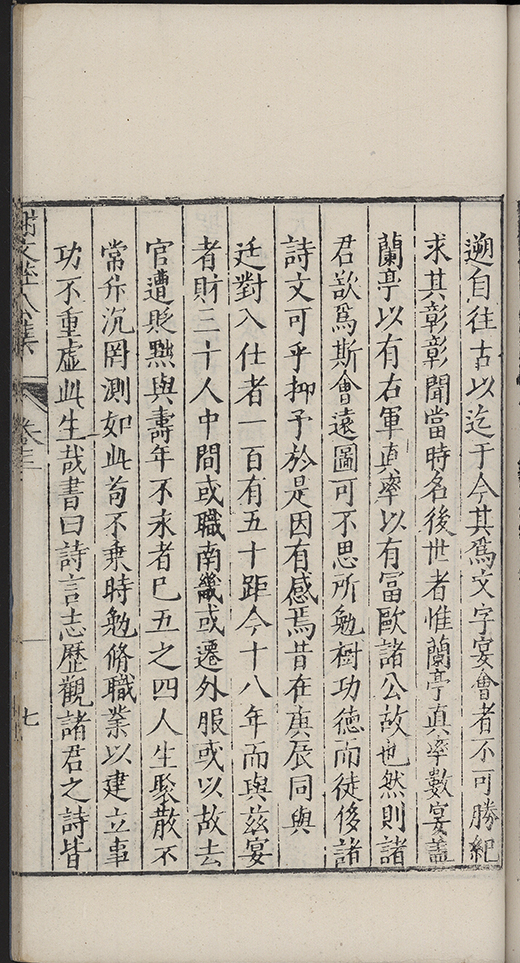 遡自往古以迄于今其爲文字宴會者不可勝紀
求其彰彰聞當時名後世者惟蘭亭真率數宴蓋
蘭亭以有右軍真率以有冨歐諸公故也然則諸
君欲爲斯會遠圖可不思所勉樹功德而徒侈諸
詩文可乎抑予於是因有感焉昔在庚辰同與
廷對入仕者一百有五十距今十八年而與茲宴
者財三十人中間或職南畿或遷外服或以故去
官遭貶黜與壽年不永者已五之四人生聚散不
常升沉罔測如此茍不乗時勉脩職業以建立事
功不重虚此生哉書曰詩言志歷觀諸君之詩皆
文莊公集 卷三 七